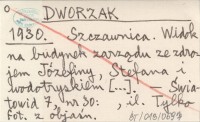 DWORZAK
1930. Szczawnica. Widok
na budynek zarządu ze zdro-
jem Józefiny, Stefana i
wodotryskiem [...]. — Świa-
towid 7, nr 30: , il. Tylko
fot. z objaśn.